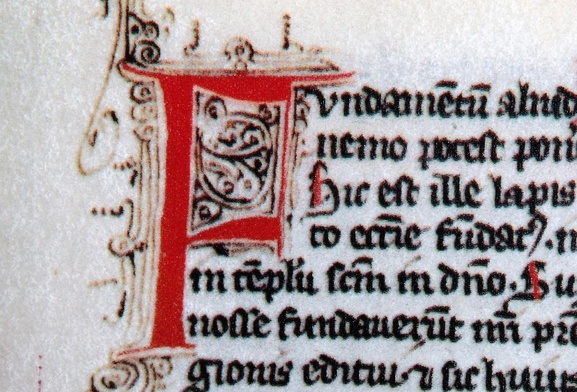 Fvndamētū aliud
nemo potest pon
Hic est ille lapis
to eccīe fūdat᷑.
in tēplū scm̄ in dn̄o. Su
nosse fundauerūt
gionis ⁊ sic huius